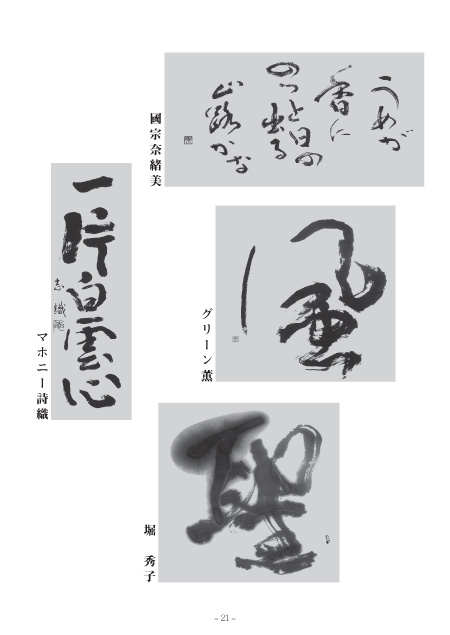 うめが
香に
のつと日の
出る
山路かな
國宗奈緒美
風
グリーン薫
一片白雲心
マホニー詩織
聖
堀　秀子
– 21 –